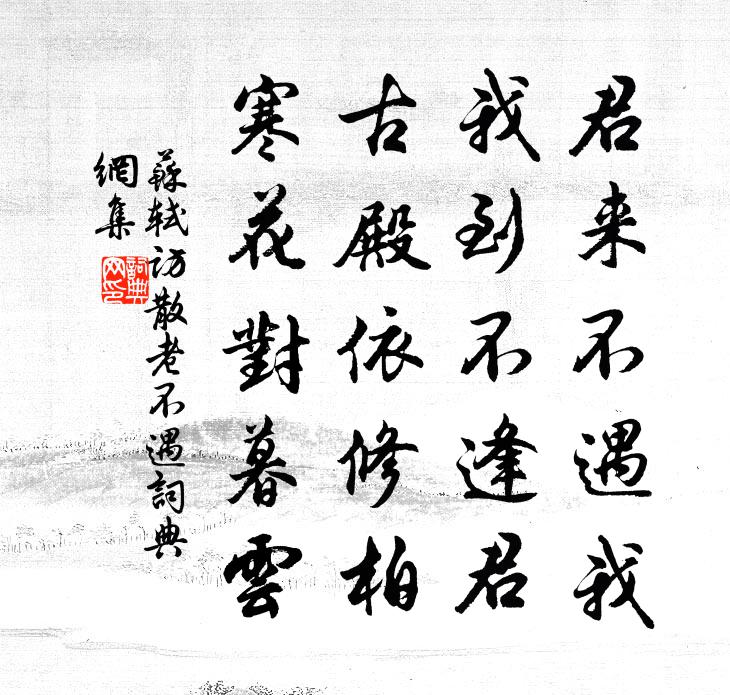 君来不遇我
我到不逢君
古殿依修柏
寒花對暮雲
蘇軾访散老不遇詞典
網集
詞典
网印